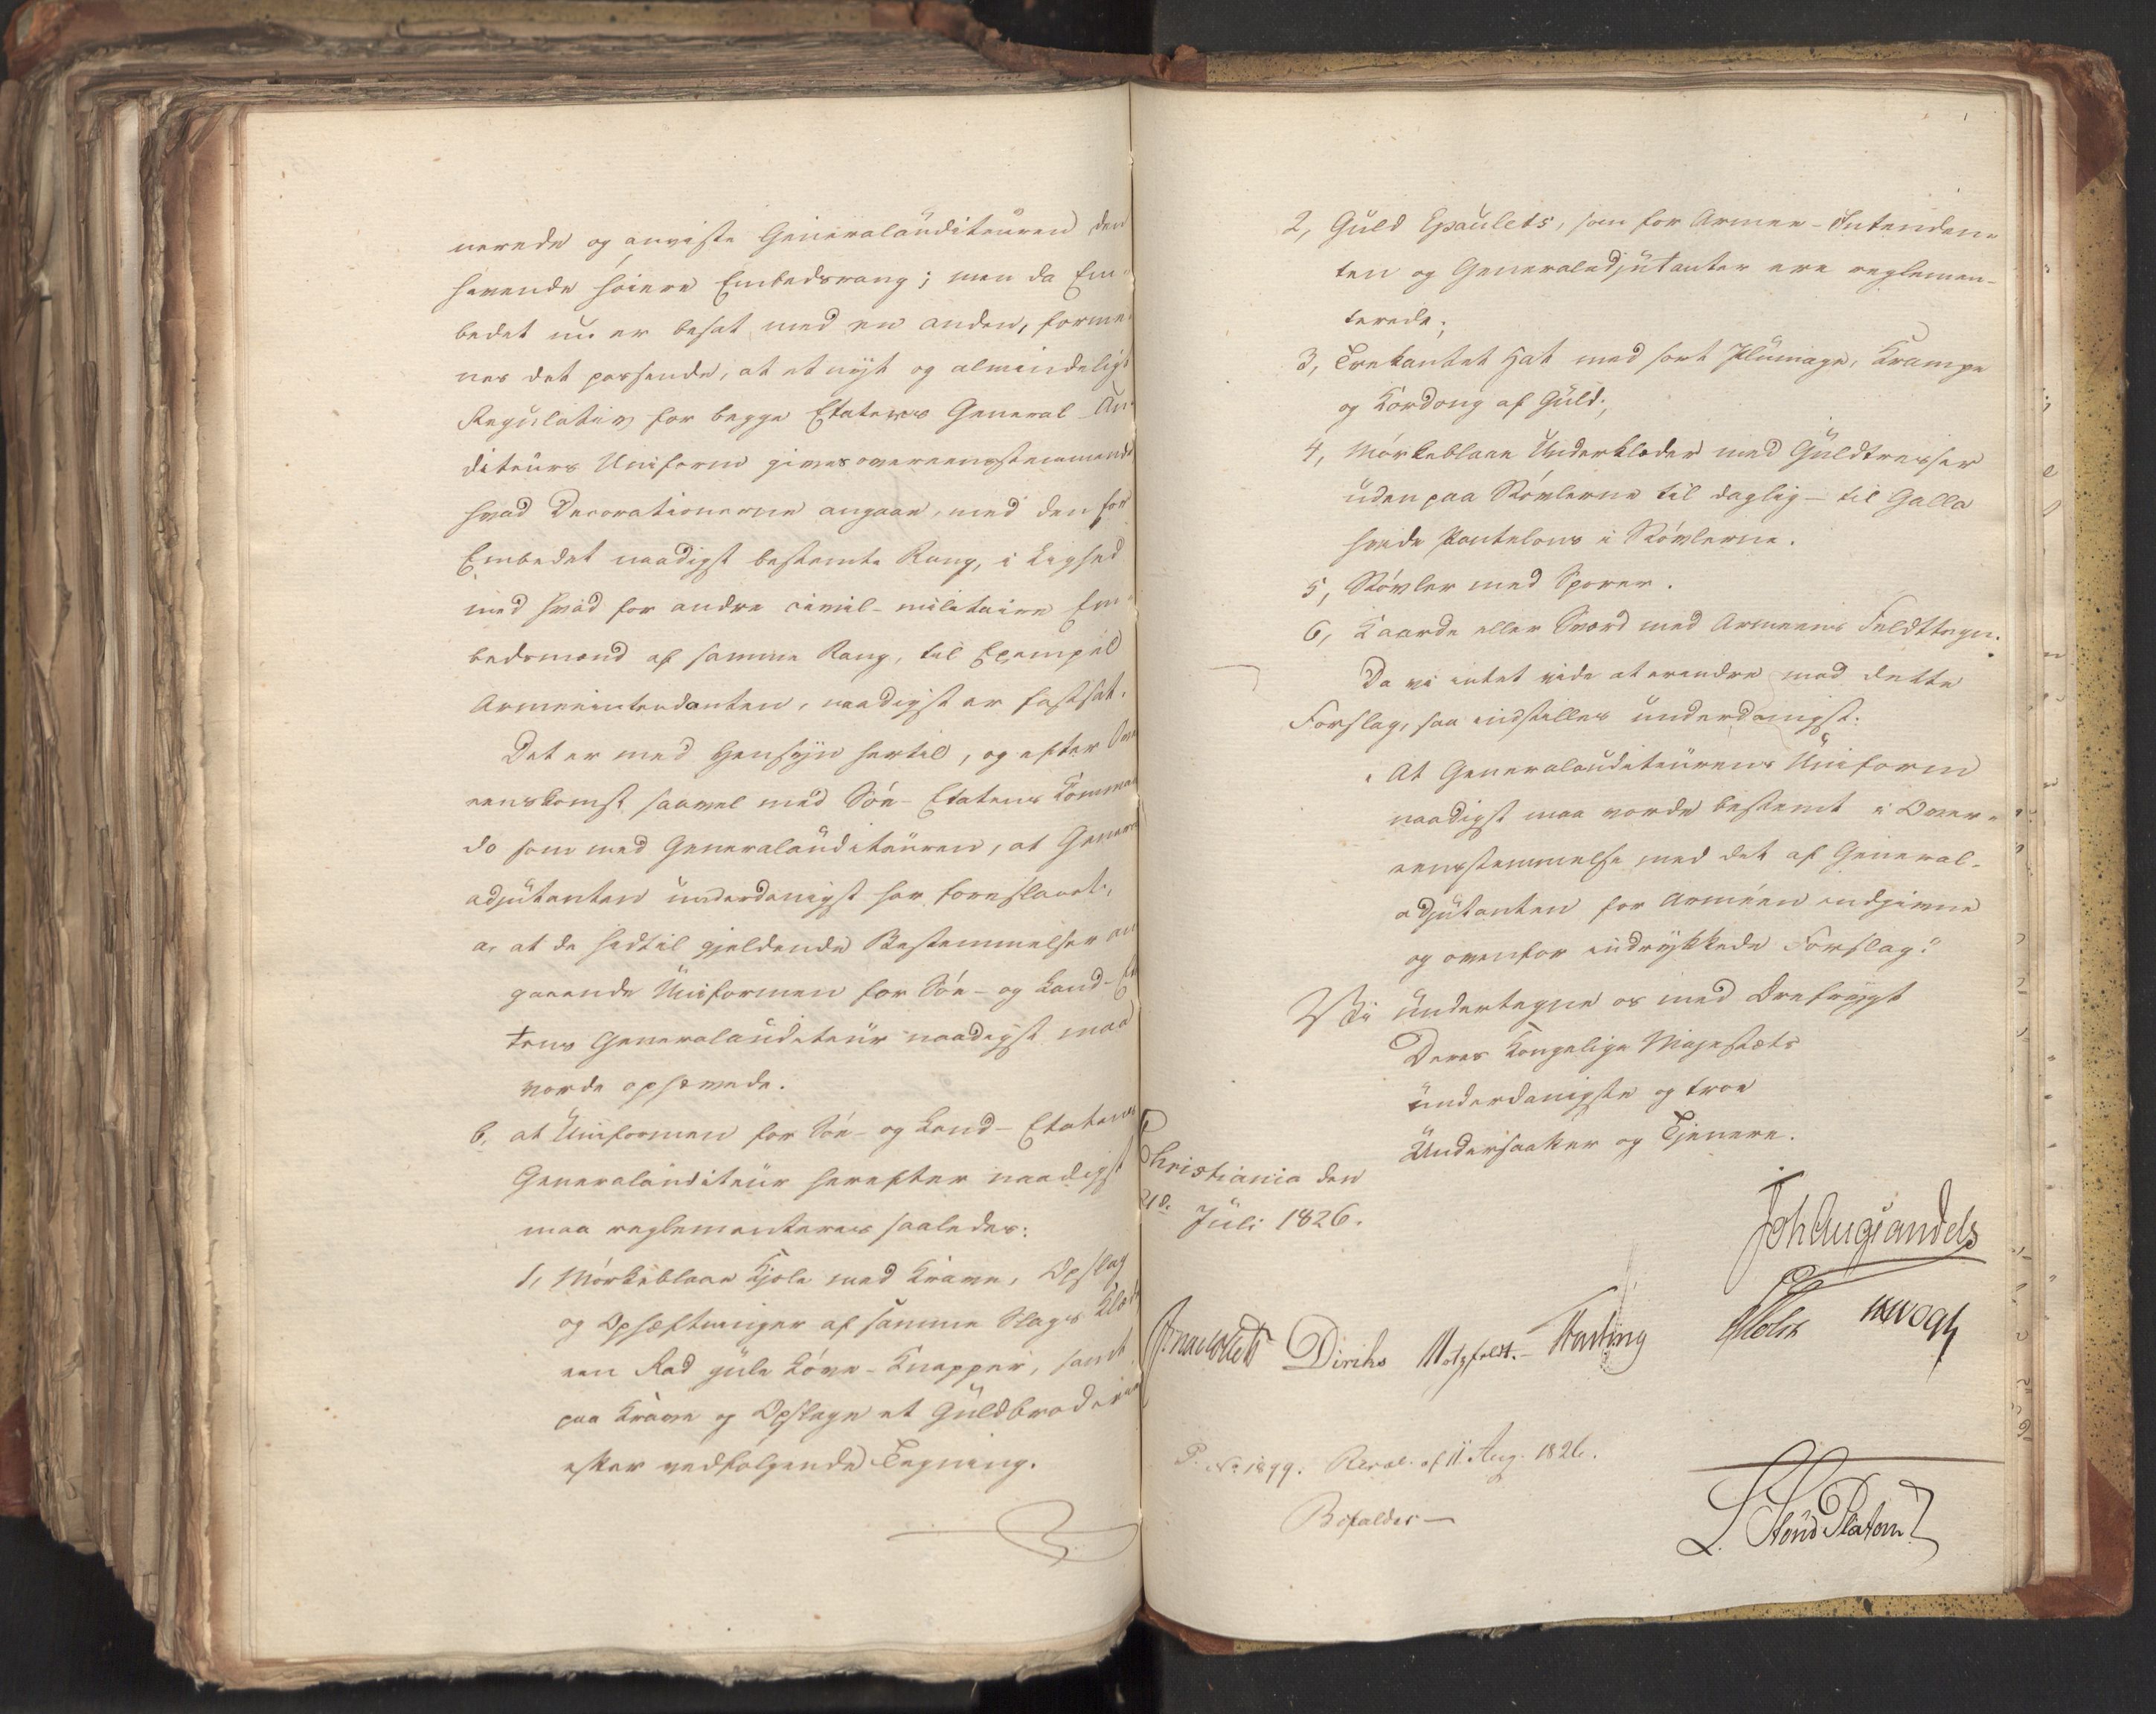 nerede og anviste Generalauditeuren den
havende høiere Embedsrang; men da Em-
bedet nu er besat med en anden, forme-
nes det passende, at et nyt og almindeligt
Regulativ for begge Etaters General-Au-
diteurs Uniform gives overeensstemmende
hvad Decorationerne angaae, med den for
Embedet naadigst bestemte Rang, i Lighed
med hvad for andre civil-militaire Em-
bedsmænd af samme Rang, til Exempel
Armeeintendanten, naadigst er fastsat.
Det er med Hensyn hertil, og efter Over
eenskomst saavel med Søe-Etatens Komman
do som med Generalauditeuren, at General
adjutanten underdanigst har foreslaaet,
a, at de hidtil gjeldende Bestemmelser an
gaaende Uniformen for Søe- og Land-Eta
tens Generalauditeur naadigst maa
vorde ophævede.
b, at Uniformen for Søe- og Land-Etatens
Generalauditeur herefter naadigst
maa reglementeres saaledes:
1, Mørkeblaae Kjole med Krave, Opslag
og Ophæftninger af samme Slags Klæde
een Rad gule Løve-Knapper, samt
paa Krave og Opslage et Guldbroderie
efter vedfølgende Tegning.
2, Guld Epaulets, som for Armee-Intendan-
ten og Generaladjutanter ere reglemen-
terede;
3, Trekantet Hat med sort Plümage, Krampe
og Kordong af Guld;
4, Mørkeblaae Underklæder med Guldtresser
uden paa Støvlerne til daglig - til Galla
hvide Pantelons i Støvlerne.
5, Støvler med Sporer.
6, Kaarde eller Sværd med Armeens Feldttegn.
Da vi intet vide at erindre mod dette
Forslag, saa indstilles underdanigst:
"At Generalauditeurens Uniform
naadigst maa vorde bestemt i Over-
eensstemmelse med det af General-
adjutanten for Arméen indgivne
og ovenfor indrykkede Forslag."
Vi undertegne os med Ærefrygt
Deres Kongelige Majestæts
underdanigste og troe
Undersaatter og Tjenere.
Christiania den
21de Juli 1826.
Joh Aug Sandels
Collett Diriks Motzfeldt. Fasting Holst Vogt
P. No 1899. Resol. af 11 Aug. 1826.
Bifaldes—
L. Stoud Platou